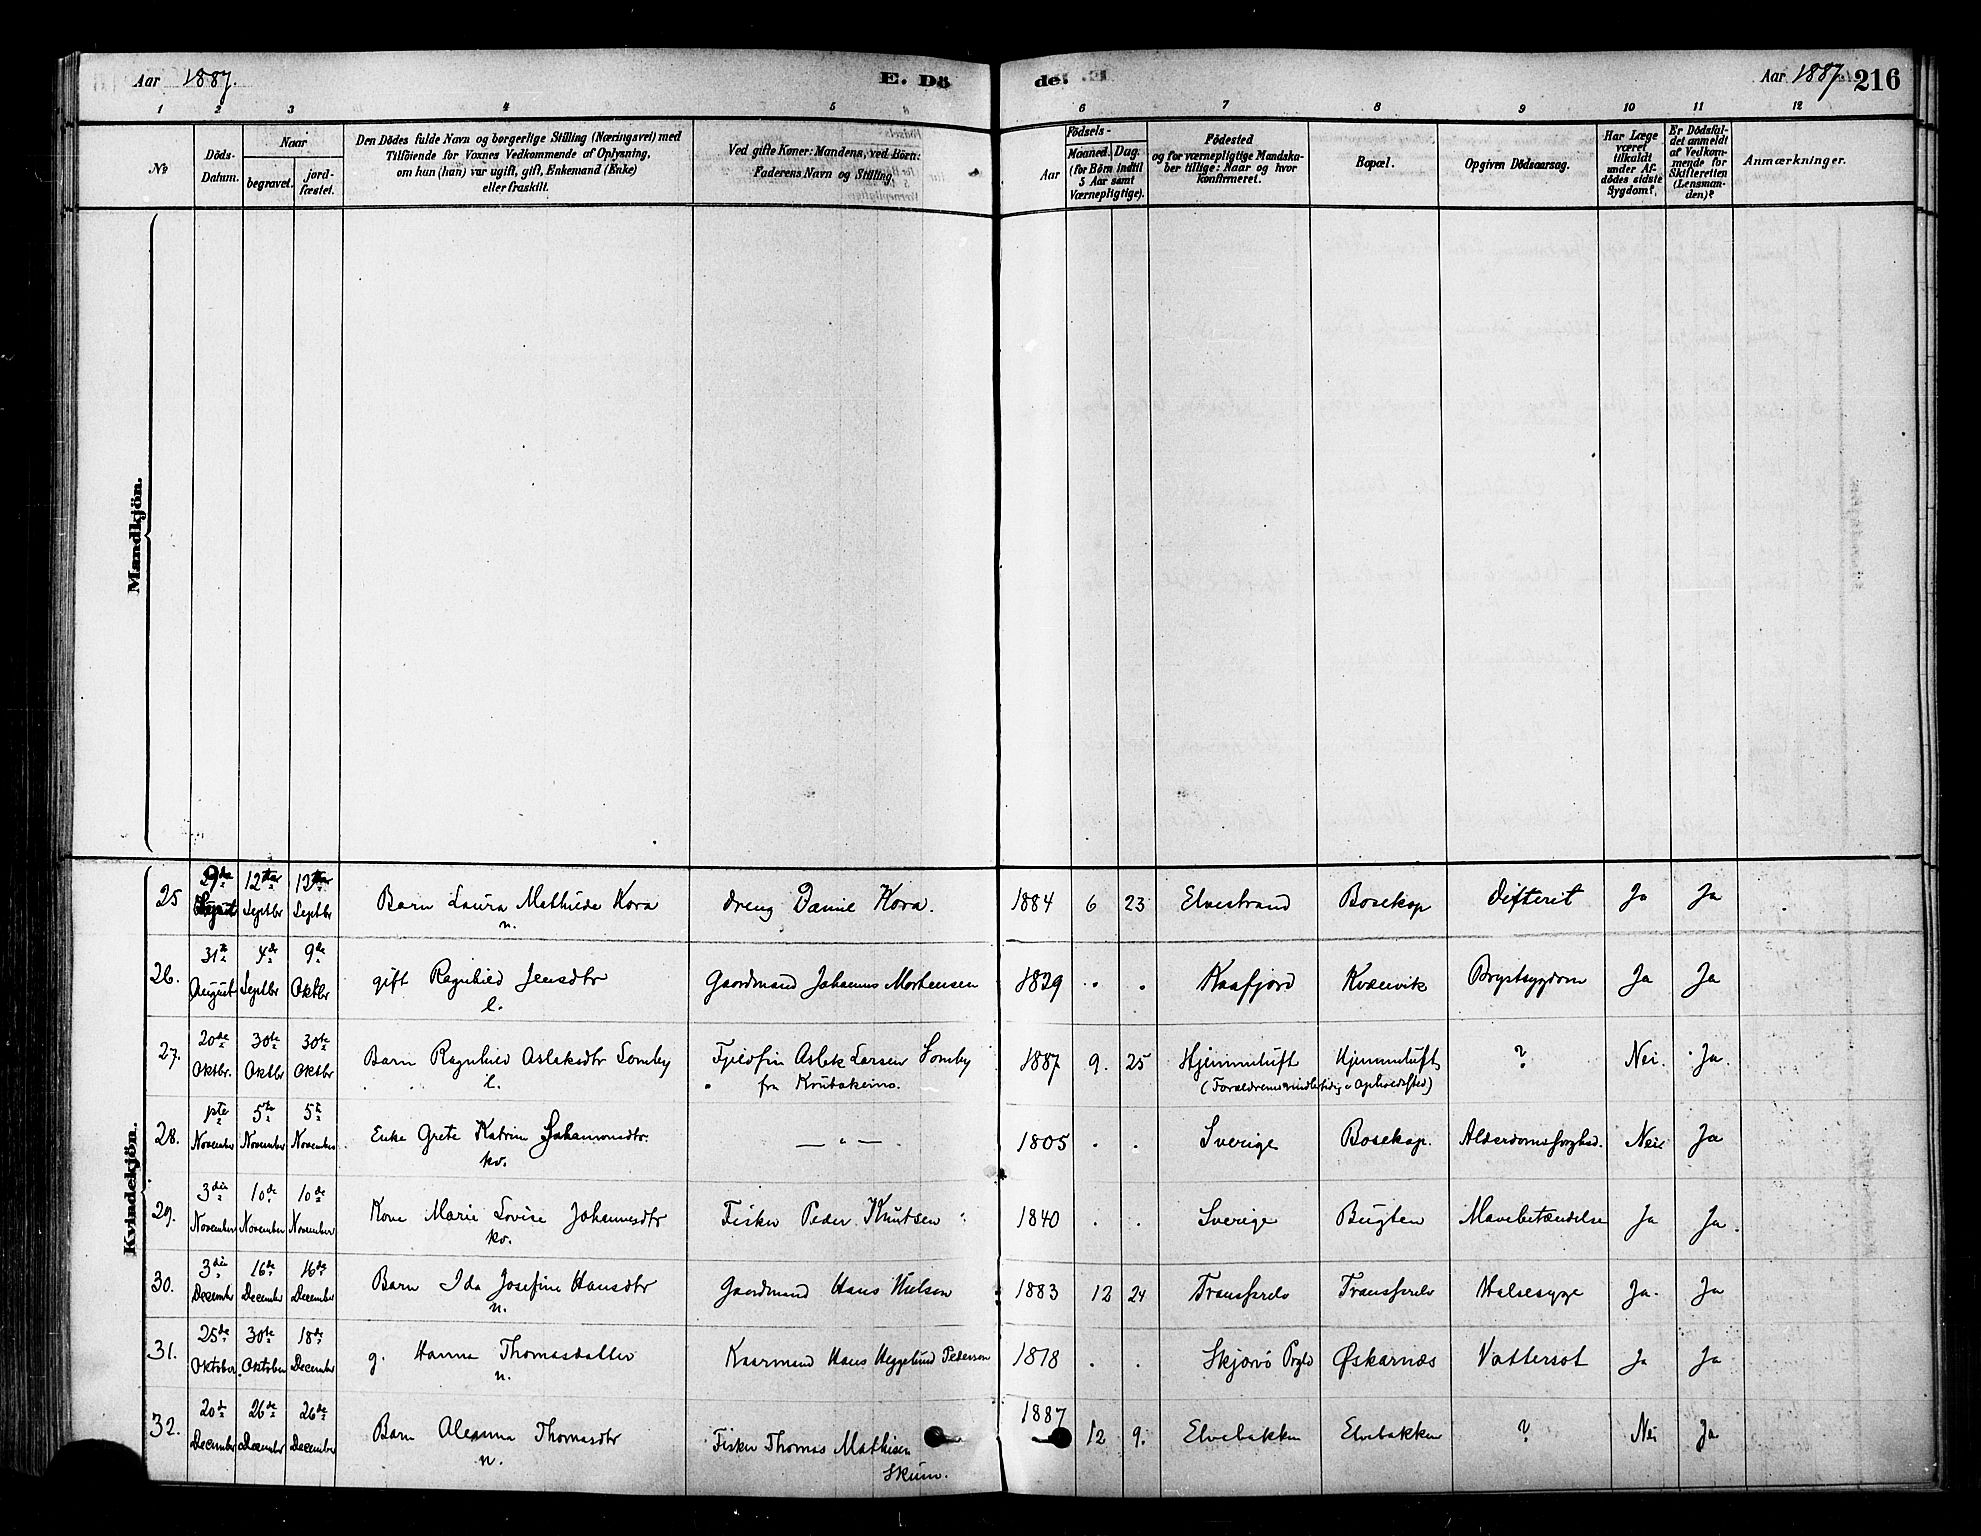 Aar 1887.
E. Dö
de.
Aar 1887. 216
1 2 3 4 5 6 7 8 9 10 11 12
No
Döds-Datum.
Naar
begravet.
jord-fæstet.
Den Dödes fulde Navn og borgerlige Stilling (Næringsvei) med
Tilföiende for Voxnes Vedkommende af Oplysning,
om hun (han) var ugift, gift, Enkemand (Enke)
eller fraskilt.
Ved gifte Koner: Mandens, ved Börn:
Faderens Navn og Stilling.
Födsels-
Aar
Maaned. Dag.
(for Börn indtil
5 Aar samt
Værnepligtige).
Födested
og for værnepligtige Mandska-
ber tillige: Naar og hvor
konfirmeret.
Bopæl.
Opgiven Dödsaarsag.
Har Læge
været
tilkaldt
under Af-
dödes sidste
Sygdom?
Er Dödsfal-
det anmeldt
af Vedkom-
mende for
Skifteretten
(Lensman-
den)?
Anmærkninger.
Mandkjön.
Kvindekjön.
25 12 Septbr Septbr Barn Laura Mathilde Kora Dreng Daniel Kora. 1884 6 23 Elvestrand Bosekop Difterit Ja Ja
n.
26. 31te August 4de Septbr 9de Oktbr gift Ragnhild Jensdtr Gaardmand Johannes Mortensen 1829 . . Kaafjord Kvænvik Brystsygdom Ja Ja
l.
27. 20de Oktbr. 30te Oktbr 30te Oktbr Barn Ragnhild Aslaksdtr Somby Fjeldfin Aslak Larsen Somby 1887 9. 25 Hjemmeluft Hjemmeluft ? Nei. Ja.
l. fra Koutokeino. (Forældrenes midlertidig Opholdssted)
28. 1ste November 5te November 5te November Enke Grete Katrine Johannesdtr. — " — 1805 . . Sverige Bosekop. Alderdomssvaghed. Nei Ja
kv.
29. 3die November 10de November 10de November Kone Marie Lovise Johannesdtr Fisker Peder Knutsen 1840 . . Sverige Bugten Mavebetændelse Ja Ja.
kv.
30. 3die December 16de December 16de December Barn Ida Josefine Hansdtr Gaardmand Hans Nielsen 1883 12 24 Transfarelv Transfarelv Halsesyge Ja. Ja
n.
31. 25de Oktober 30te Oktober 18de December g. Hanna Thomasdatter Kaarmand Hans Heggelund Pederson 1818 . . Skjærvö Prgld Øskarnæs Vattersot Ja Ja
n.
32. 20de December 26de December 26de December Barn Aleanna Thomasdtr Fisker Thomas Mathisen 1887 12 9. Elvebakken Elvebakken ? Nei Ja
n. Skum.